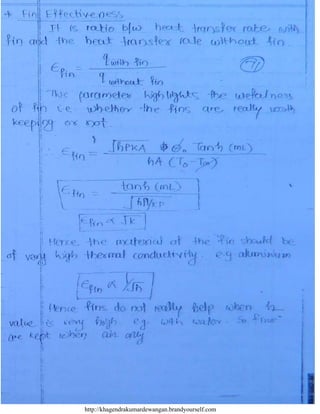 → Fin Effectiveness
It is ratio b/w heat transfer rate with
fin and the heat transfer rate without fin.
ε fin = q with fin / q without fin
This parameter highlights the usefulness
of fin i.e. whether the fins are really worth
keeping or not
∴ ε fin = √hPKA θ₀ Tanh (mL) / hA (T₀-T∞)
ε fin = tanh (mL) / √hA/KP
ε fin ∝ √K
Hence the material of the fin should be
of very high thermal conductivity. e.g. aluminium
ε fin ∝ 1/√h
Hence fins do not really help when h
value is very high. e.g. with water. So fins
are kept when air only
http://khagendrakumardewangan.brandyourself.com